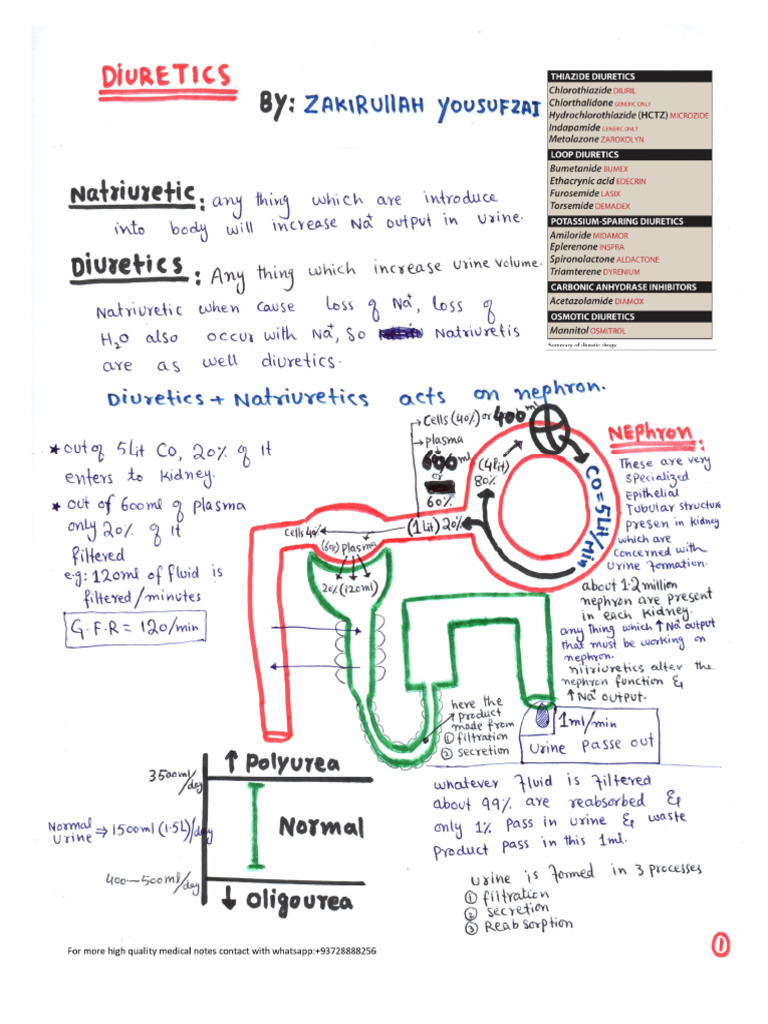 DIURETICS
By: ZAKIRULLAH YOUSUFZAI
THIAZIDE DIURETICS
Chlorothiazide DIURIL
Chlorthalidone GENERIC ONLY
Hydrochlorothiazide (HCTZ) MICROZIDE
Indapamide GENERIC ONLY
Metolazone ZAROXOLYN
LOOP DIURETICS
Bumetanide BUMEX
Ethacrynic acid EDECRIN
Furosemide LASIX
Torsemide DEMADEX
POTASSIUM-SPARING DIURETICS
Amiloride MIDAMOR
Eplerenone INSPRA
Spironolactone ALDACTONE
Triamterene DYRENIUM
CARBONIC ANHYDRASE INHIBITORS
Acetazolamide DIAMOX
OSMOTIC DIURETICS
Mannitol OSMITROL
Summary of diuretic drugs.
Natriuretic: any thing which are introduce
into body will increase Na+ output in urine.
Diuretics: Any thing which increase urine volume.
Natriuretic when cause loss of Na+, loss of
H2O also occur with Na+, So Natriuretis
are as well diuretics.
Diuretics + Natriuretics acts on nephron.
* out of 5Lit CO, 20% of it
enters to kidney.
* out of 600ml of plasma
only 20% of it
filtered
e.g: 120ml of fluid is
filtered/minutes
G.F.R = 120/min
Cells (40%) or 400ml
plasma
600ml
or
60%
(4lit)
80%
CO=5Lit/Min
(1Lit) 20%
Cells 40%
(60%) plasma
20% (120ml)
NEPhron:
These are very
specialized
epithelial
Tubular structure
presen in kidney
which are
concerned with
urine formation.
about 1.2 million
nephron are present
in each kidney.
any thing which ↑ Na+ output
that must be working on
nephron.
nitriuretics alter the
nephron function &
↑ Na+ output.
here the
product
made from
① filtration
② secretion
1ml/min
urine passe out
↑ Polyurea
3500ml/day
Normal
Urine ⇒ 1500ml (1.5L)/day
Normal
400-500ml/day
↓ Oligourea
whatever fluid is filtered
about 99% are reabsorbed &
only 1% pass in urine & waste
product pass in this 1ml.
urine is formed in 3 processes
① filtration
② secretion
③ Reabsorption
For more high quality medical notes contact with whatsapp:+93728888256
①